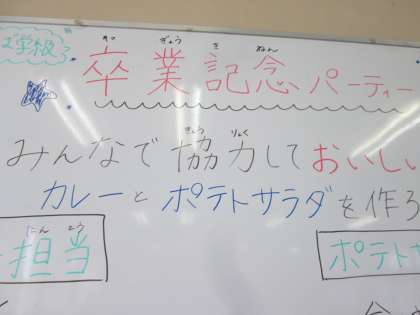 学級
そつ ぎょう き ねん
卒業記念パーティー
きょう りょく
みんなで協力しておいしい
カレーとポテトサラダを作ろ
たん とう
担当
ポテトサ